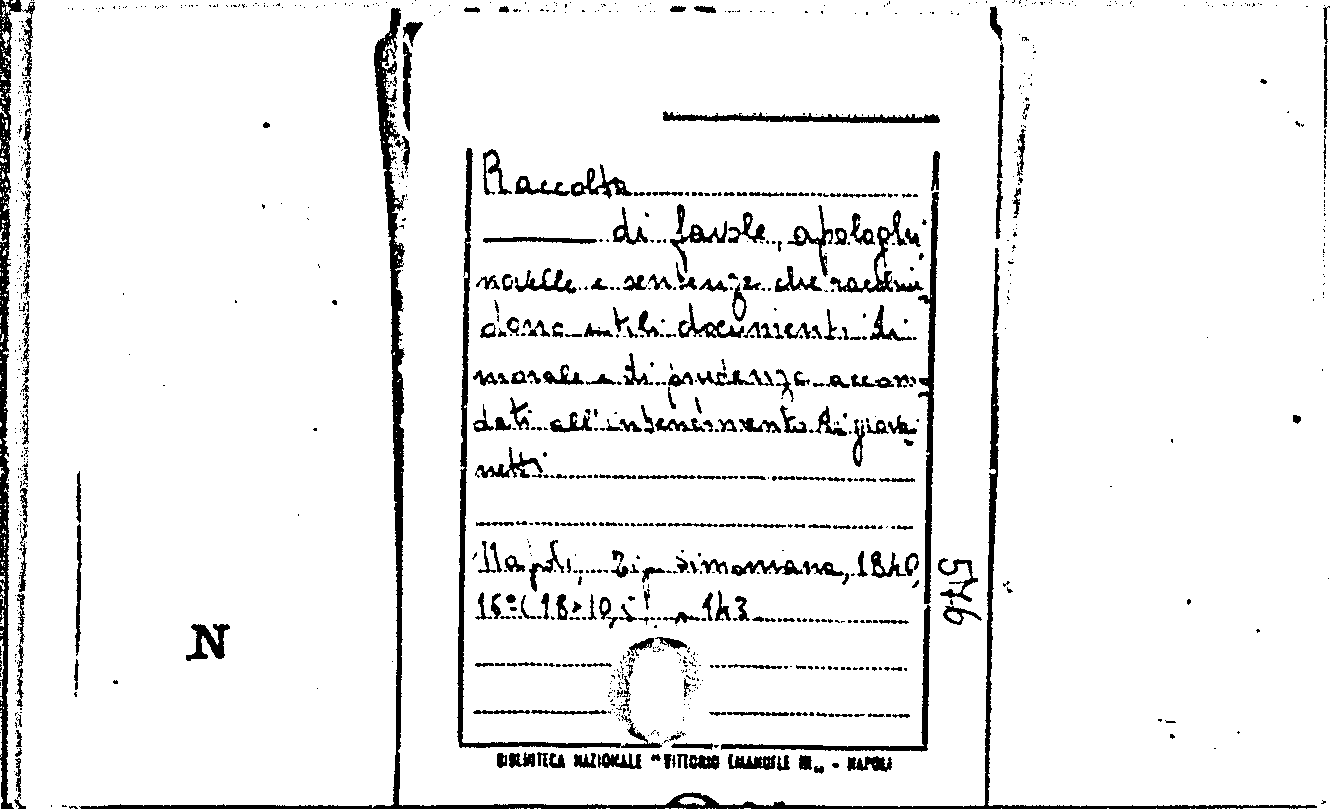 Raccolta
di favole, apologhi
novelle e sentenze che racchiu
dono utili documenti di
morale e di prudenza accom
dati all'intendimento di giova
netti
Napoli, Tip. Simoniana, 1840,
16º (18×10,5) p. 143
546
N
BIBLIOTECA NAZIONALE "VITTORIO EMANUELE III" - NAPOLI